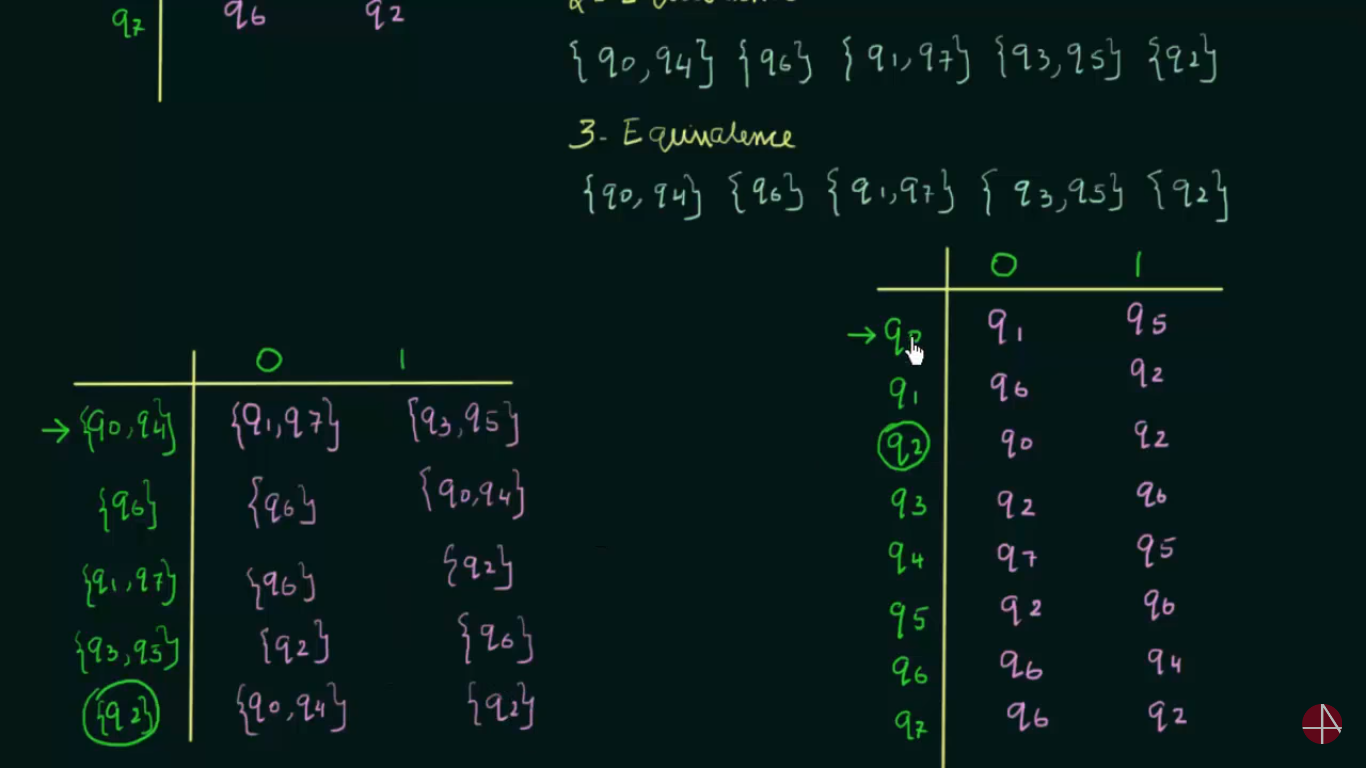 q7 q6 q2
{q0,q4} {q6} {q1,q7} {q3,q5} {q2}
3- Equivalence
{q0,q4} {q6} {q1,q7} {q3,q5} {q2}
0 1
→{q0,q4} {q1,q7} {q3,q5}
{q6} {q6} {q0,q4}
{q1,q7} {q6} {q2}
{q3,q5} {q2} {q6}
{q2} {q0,q4} {q2}
0 1
→q0 q1 q5
q1 q6 q2
q2 q0 q2
q3 q2 q6
q4 q7 q5
q5 q2 q6
q6 q6 q4
q7 q6 q2